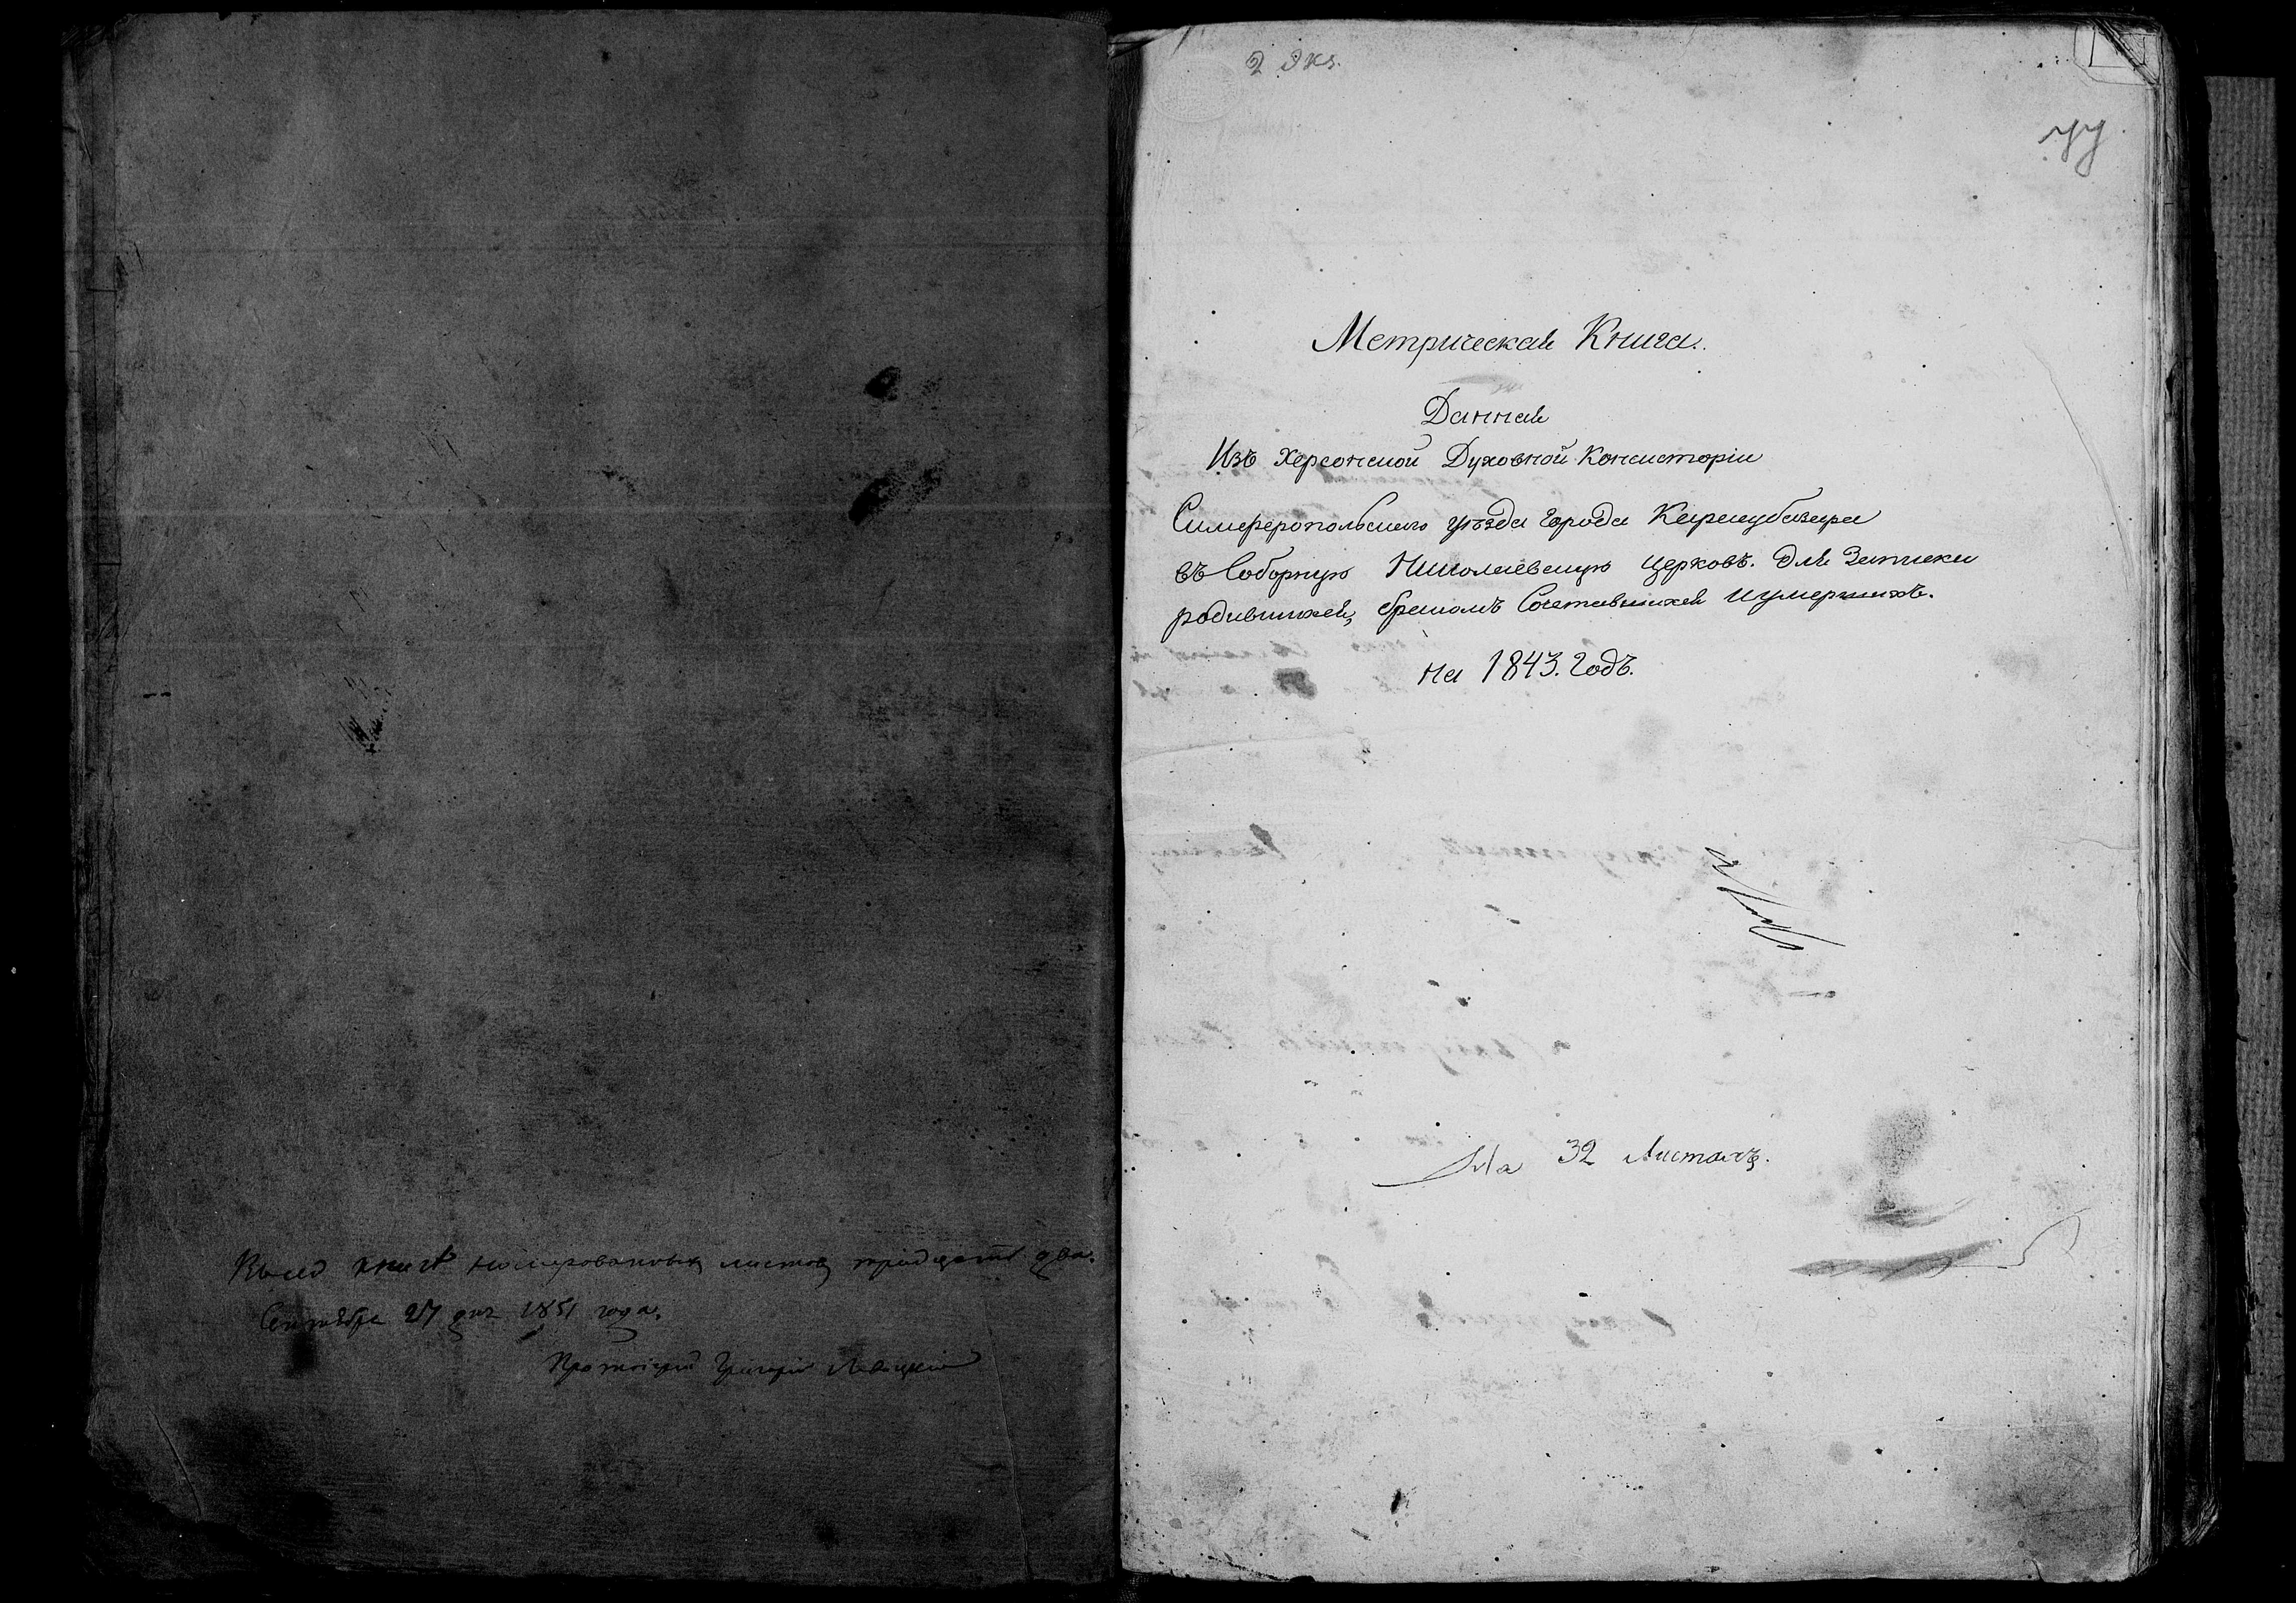 Въ сей книгѣ номерованныхъ листовъ тридцать два.
Сентября 27 дня 1851 года.
Протоіерей Григорій
2 экз.
Метрическая Книга.
Данная
Изъ Херсонской Духовной Консисторіи
Симферопольскаго уѣзда города Карасубазара
въ Соборную Николаевскую церковь. для Записки
родившихся, бракомъ Сочетавшихся и умершихъ.
на 1843. Годъ.
На 32 Листахъ.